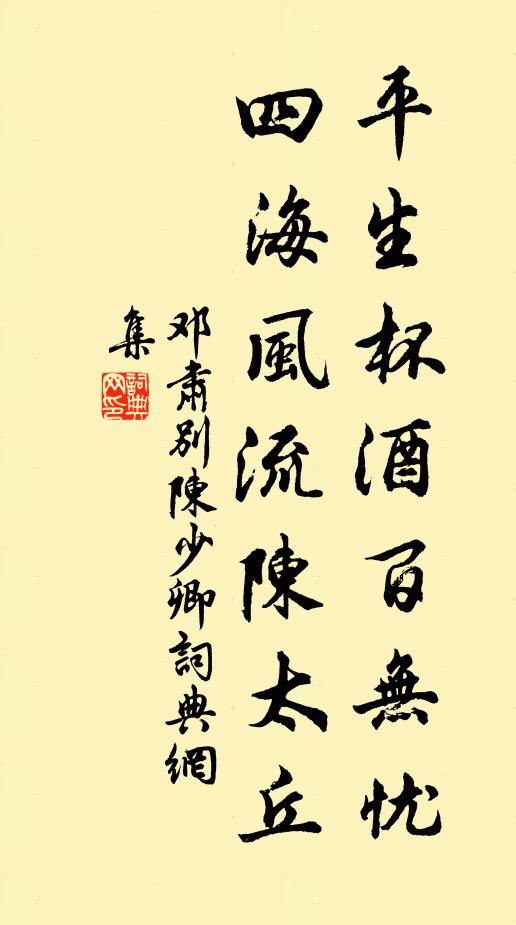 平生杯酒百無忧
四海風流陳太丘
邓肅别陳少卿詞典網
集
詞典
网印